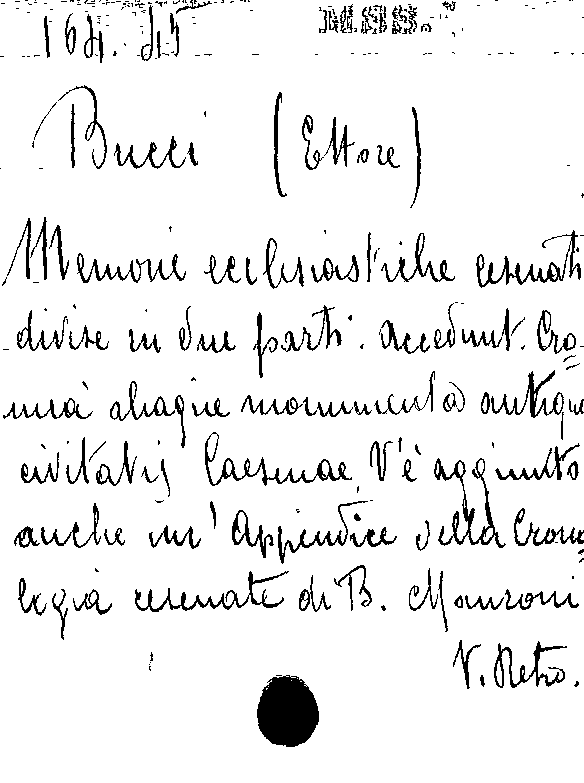 164.45 MSS.
Bucci (Ettore)
Memorie ecclesiastiche cesenati
divise in due parti. Accedunt. Cro=
nica aliaque monumenta antique
civitatis Caesenae. V'è aggiunto
anche un' Appendice della Crono=
logia cesenate di B. Manzoni
V. Retro.